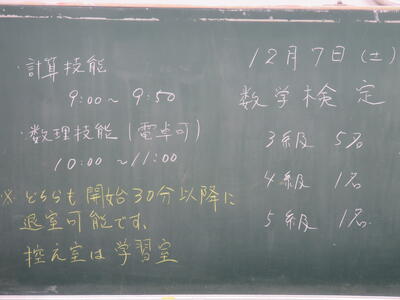 ・計算技能
9:00～9:50
・数理技能(電卓可)
10:00～11:00
※どちらも開始30分以降に
退室可能です。
控え室は学習室
12月7日(土)
数学検定
3級 5名
4級 1名
5級 1名